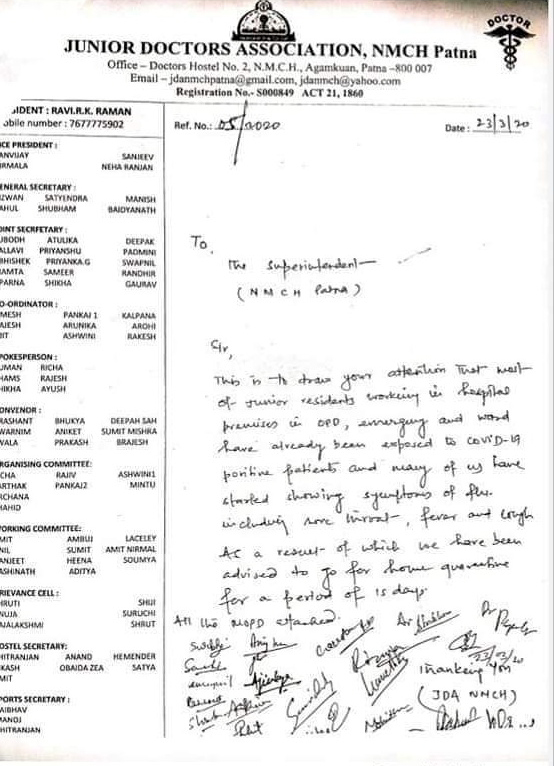 DOCTOR
JUNIOR DOCTORS ASSOCIATION, NMCH Patna
Office – Doctors Hostel No. 2, N.M.C.H., Agamkuan, Patna –800 007
Email – jdanmchpatna@gmail.com, jdanmch@yahoo.com
Registration No.- S000849 ACT 21, 1860
IDENT : RAVI.R.K. RAMAN
abile number : 7677775902
Ref. No.: 05/2020
Date : 23/3/20
ICE PRESIDENT :
ANVIJAY SANJEEV
IRMALA NEHA RANJAN
ENERAL SECRETARY :
IZWAN SATYENDRA MANISH
AHUL SHUBHAM BAIDYANATH
OINT SECRFETARY :
UBODH ATULIKA DEEPAK
ALLAVI PRIYANSHU PADMINI
BHISHEK PRIYANKA.G SWAPNIL
IAMTA SAMEER RANDHIR
PARNA SHIKHA GAURAV
O-ORDINATOR :
MESH PANKAJ 1 KALPANA
AJESH ARUNIKA AROHI
JIT ASHWINI RAKESH
POKESPERSON :
UMAN RICHA
HAMS RAJESH
HIKHA AYUSH
ONVENOR :
RASHANT BHUKYA DEEPAH SAH
WARNIM ANIKET SUMIT MISHRA
WALA PRAKASH BRAJESH
RGANISING COMMITTEE:
CHA RAJIV ASHWINI1
ARTHAK PANKAJ2 MINTU
RCHANA
HAHID
ORKING COMMITTEE:
MIT AMBUJ LACELEY
NIL SUMIT AMIT NIRMAL
ANJEET HEENA SOUMYA
ASHINATH ADITYA
RIEVANCE CELL :
HRUTI SHIJI
NUJA SURUCHI
NJALAKSHMI SHRUT
OSTEL SECRETARY:
HITRANJAN ANAND HEMENDER
KASH OBAIDA ZEA SATYA
MIT
PORTS SECRETARY :
AIBHAV
MANOJ
HITRANJAN
To,
The Superintendent
(NMCH Patna)
Sir,
This is to draw your attention that most
of junior residents working in hospital
premises in OPD, emerging and ward
have already been exposed to COVID-19
positive patients and many of us have
started showing symptoms of flu.
including sore throat, fever and cough
As a result of which we have been
advised to go for home quarantine
for a period of 15 days.
All the MOPD attached.
23/03/20
Thanking You
(JDA NMCH)